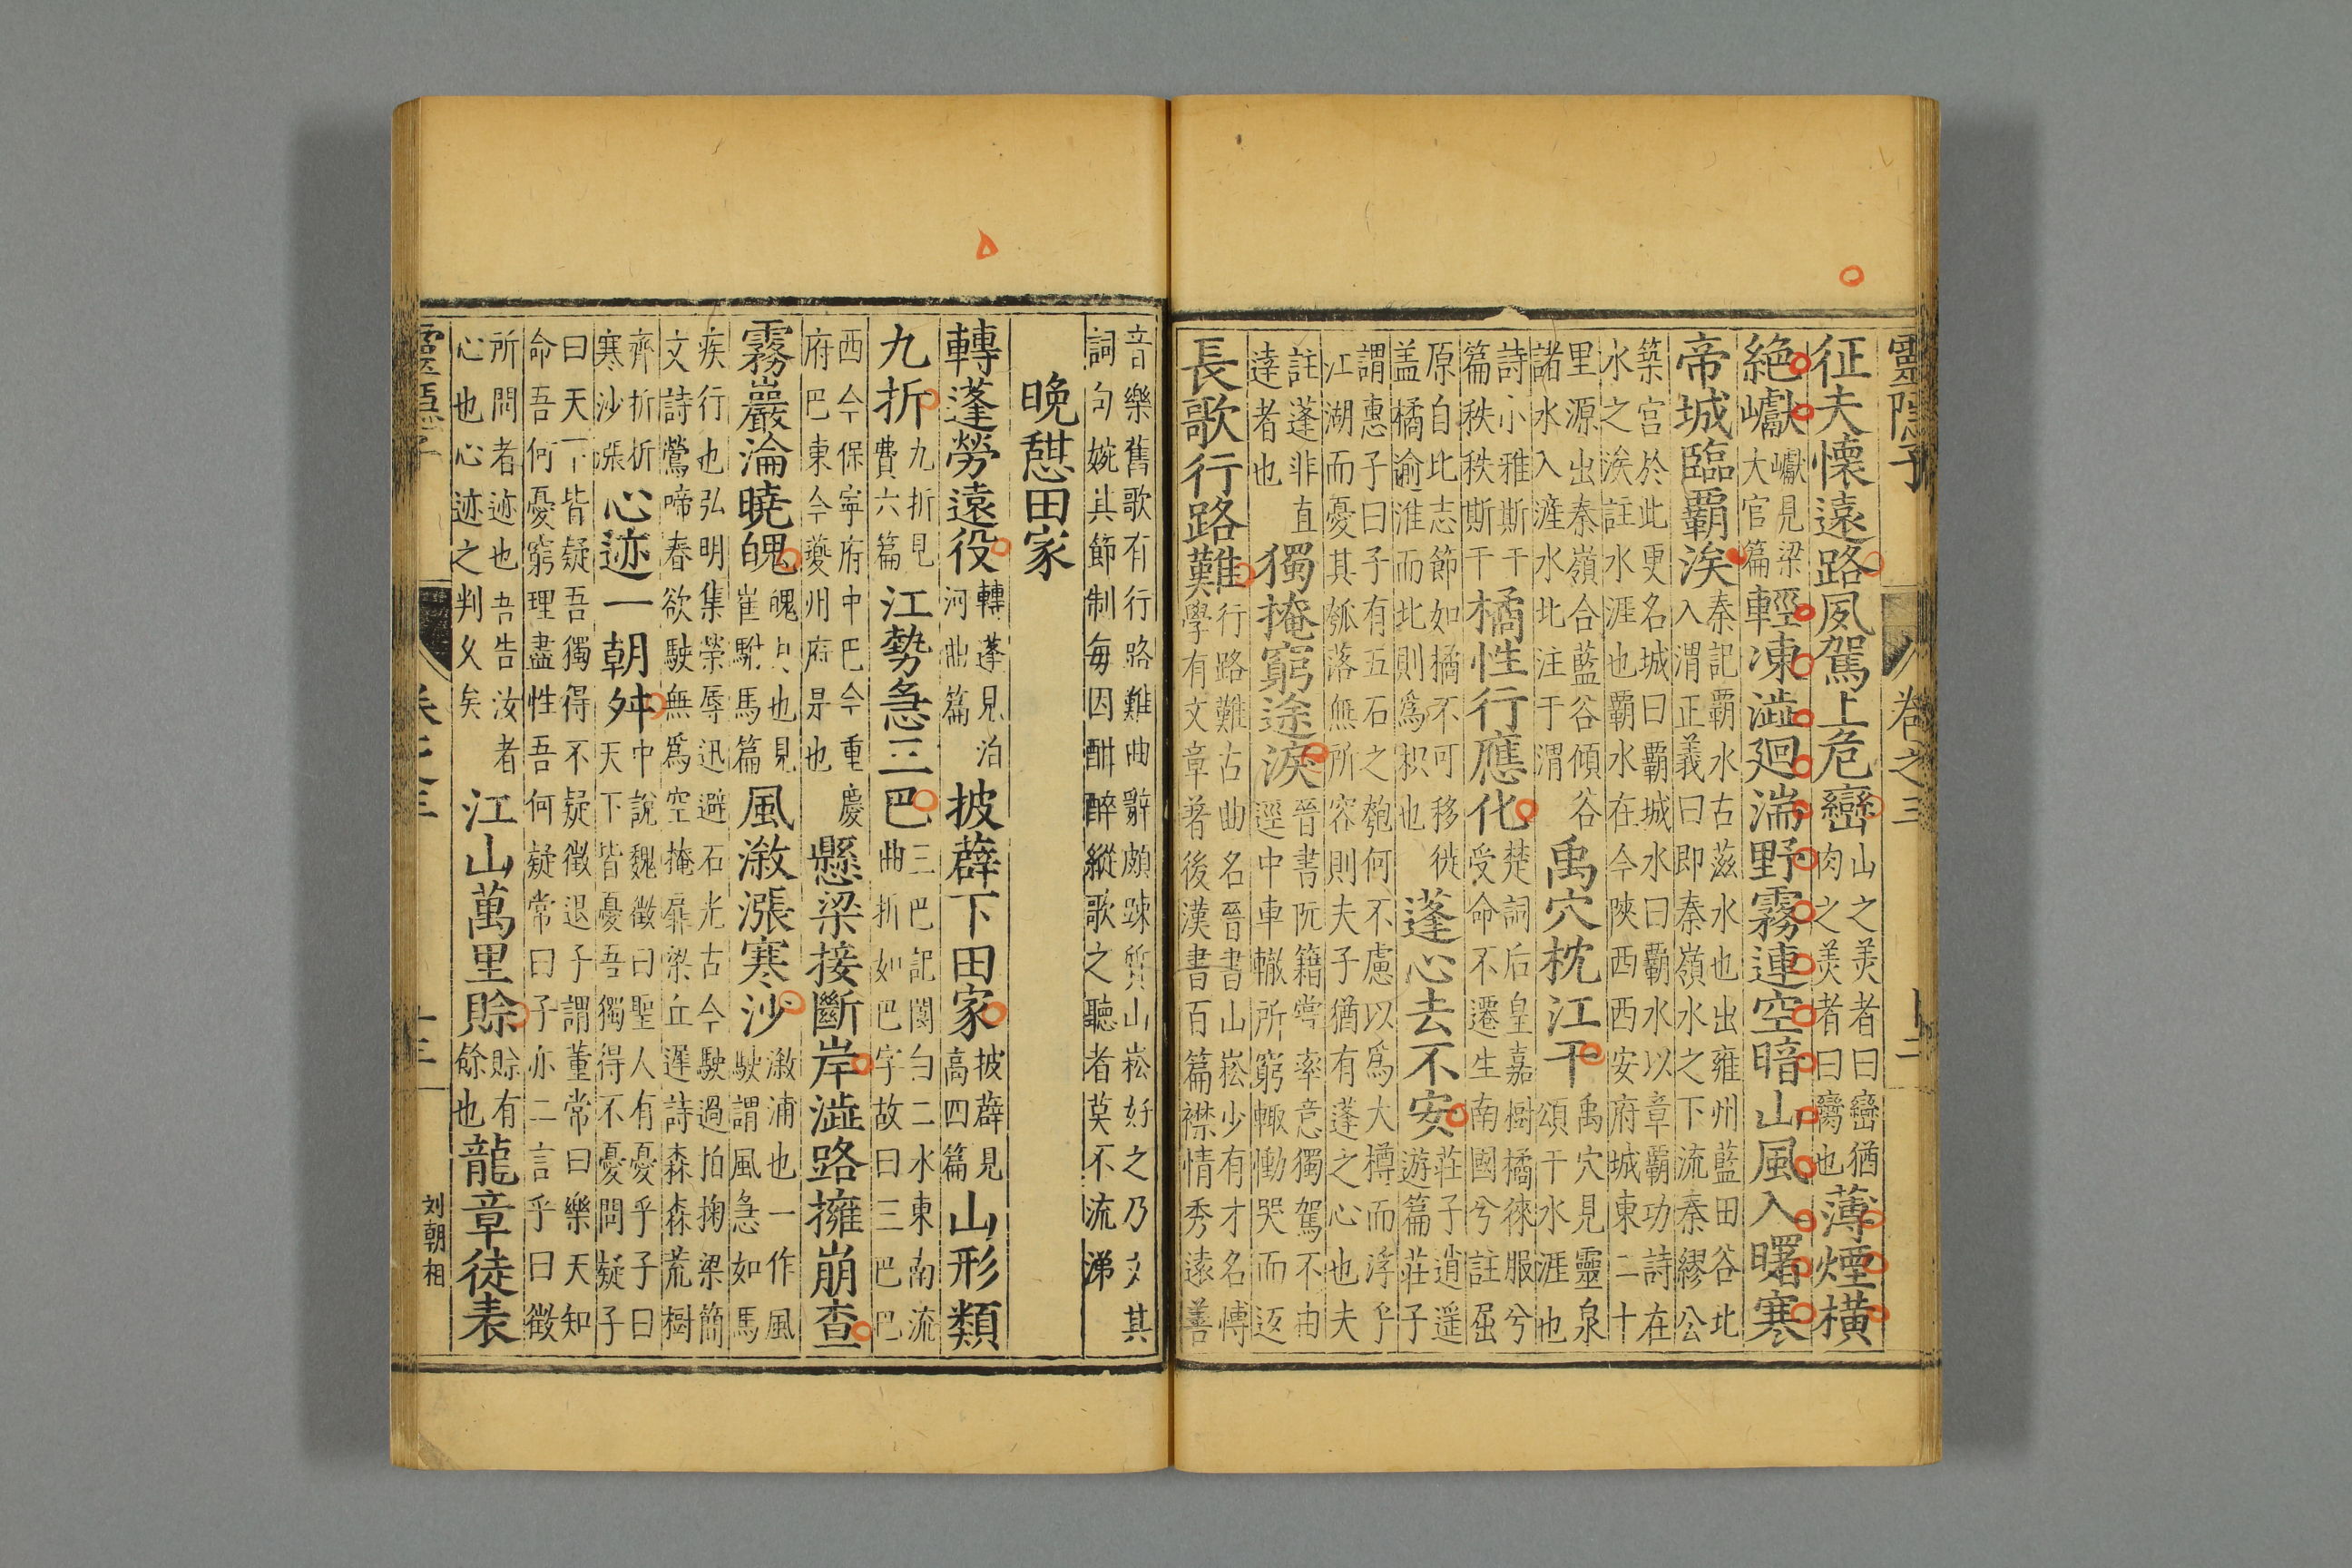 靈隱子
卷之三
征夫懷遠路夙駕上危巒山之羙者曰巒猶
肉之羙者曰臠也薄煙橫
絶巘巘見梁
大官篇輕凍澁廻湍野霧連空暗山風入曙寒
帝城臨覇涘秦記覇水古滋水也出雍州藍田谷北
入渭正義曰即秦嶺水之下流秦繆公
築宫於此更名城曰覇城水曰覇水以章覇功詩在
水之涘註水涯也覇水在今陝西西安府城東二十
里源出秦嶺合藍谷傾谷
諸水入滻水北注于渭禹穴枕江干禹穴見靈泉
頌干水涯也
詩小雅斯干
篇秩秩斯干橘性行應化楚詞后皇嘉樹橘徠服兮
受命不遷生南國兮註屈
原自比志節如橘不可移徙
盖橘逾淮而北則爲枳也蓬心去不安莊子逍遥
遊篇莊子
謂惠子曰子有五石之匏何不慮以爲大樽而浮乎
江湖而憂其瓠落無所容則夫子猶有蓬之心也夫
註蓬非直
達者也獨掩窮途淚晉書阮籍嘗率意獨駕不由
逕中車轍所窮輙慟哭而返
長歌行路難行路難古曲名晉書山崧少有才名愽
學有文章著後漢書百篇襟情秀遠善
音樂舊歌有行路難曲辭頗疎質山崧好之乃文其
詞句婉其節制每因酣醉縱歌之聽者莫不流涕
晚憇田家
轉蓬勞遠役轉蓬見泊
河曲篇披薜下田家披薜見
高四篇山形類
九折九折見
費六篇江勢急三巴三巴記閬白二水東南流
曲折如巴字故曰三巴巴
西今保寧府中巴今重慶
府巴東今夔州府是也懸梁接斷岸澁路擁崩查
霧巖淪曉魄魄月也見
崔駙馬篇風溆漲寒沙溆浦也一作風
駛謂風急如馬
疾行也弘明集榮辱迅避石光古今駛過拍掬梁簡
文詩鶯啼春欲駛無爲空掩扉梁丘遲詩森森荒樹
齊折折
寒沙漲心迹一朝舛中說魏徵曰聖人有憂乎子曰
天下皆憂吾獨得不憂問疑子
曰天下皆疑吾獨得不疑徵退子謂董常曰樂天知
命吾何憂窮理盡性吾何疑常曰子亦二言乎曰徵
所問者迹也吾告汝者
心也心迹之判久矣江山萬里賖賖有
餘也龍章徒表
刘朝相